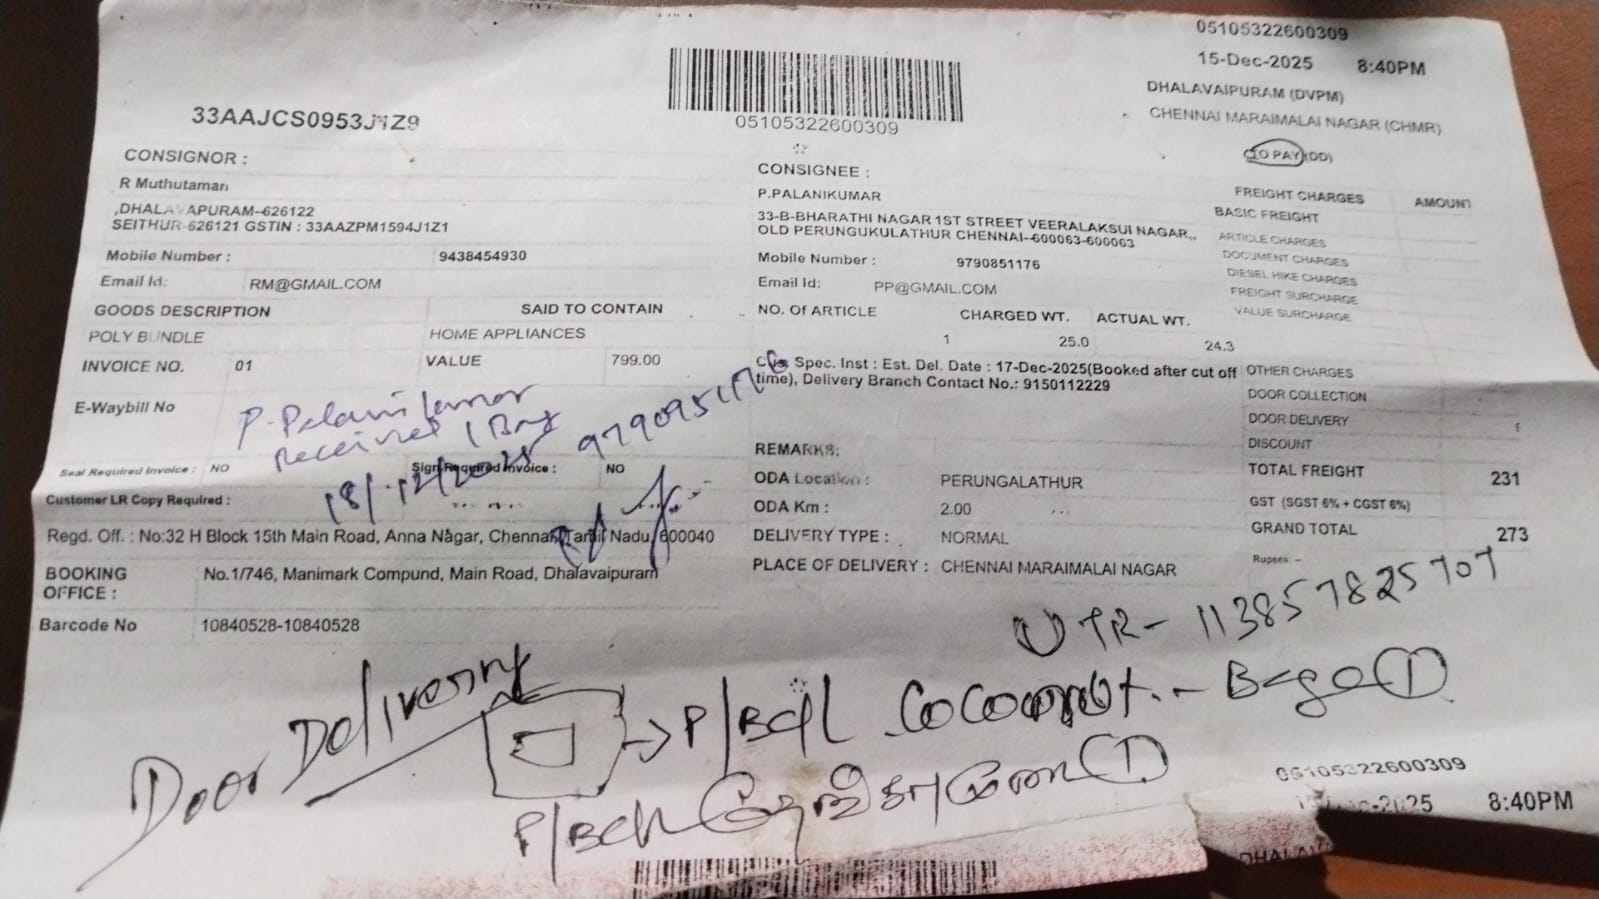 05105322600309
15-Dec-2025 8:40PM
DHALAVAIPURAM (DVPM)
CHENNAI MARAIMALAI NAGAR (CHMR)
TO PAY (DD)
33AAJCS0953J1Z9
05105322600309
CONSIGNOR :
R Muthutaman
,DHALAVAPURAM--626122
SEITHUR-626121 GSTIN : 33AAZPM1594J1Z1
Mobile Number : 9438454930
Email Id: RM@GMAIL.COM
GOODS DESCRIPTION SAID TO CONTAIN
POLY BUNDLE HOME APPLIANCES
INVOICE NO. 01 VALUE 799.00
E-Waybill No
P. Palanikumar
received 1 Bag
18/12/2025 9790951176
Seal Required Invoice : NO Sign Required Invoice : NO
Customer LR Copy Required :
Regd. Off. : No:32 H Block 15th Main Road, Anna Nagar, Chennai, Tamil Nadu, 600040
BOOKING OFFICE : No.1/746, Manimark Compund, Main Road, Dhalavaipuram
Barcode No 10840528-10840528
CONSIGNEE :
P.PALANIKUMAR
33-B-BHARATHI NAGAR 1ST STREET VEERALAKSUI NAGAR,,
OLD PERUNGUKULATHUR CHENNAI--600063-600063
Mobile Number : 9790851176
Email Id: PP@GMAIL.COM
NO. Of ARTICLE CHARGED WT. ACTUAL WT.
1 25.0 24.3
Spec. Inst : Est. Del. Date : 17-Dec-2025(Booked after cut off
time), Delivery Branch Contact No.: 9150112229
REMARKS:
ODA Location : PERUNGALATHUR
ODA Km : 2.00
DELIVERY TYPE : NORMAL
PLACE OF DELIVERY : CHENNAI MARAIMALAI NAGAR
FREIGHT CHARGES AMOUNT
BASIC FREIGHT
ARTICLE CHARGES
DOCUMENT CHARGES
DIESEL HIKE CHARGES
FREIGHT SURCHARGE
VALUE SURCHARGE
OTHER CHARGES
DOOR COLLECTION
DOOR DELIVERY
DISCOUNT
TOTAL FREIGHT 231
GST (SGST 6% + CGST 6%)
GRAND TOTAL 273
Rupees --
UTR- 113857825707
Door Delivering
Coconut
05105322600309
8:40PM